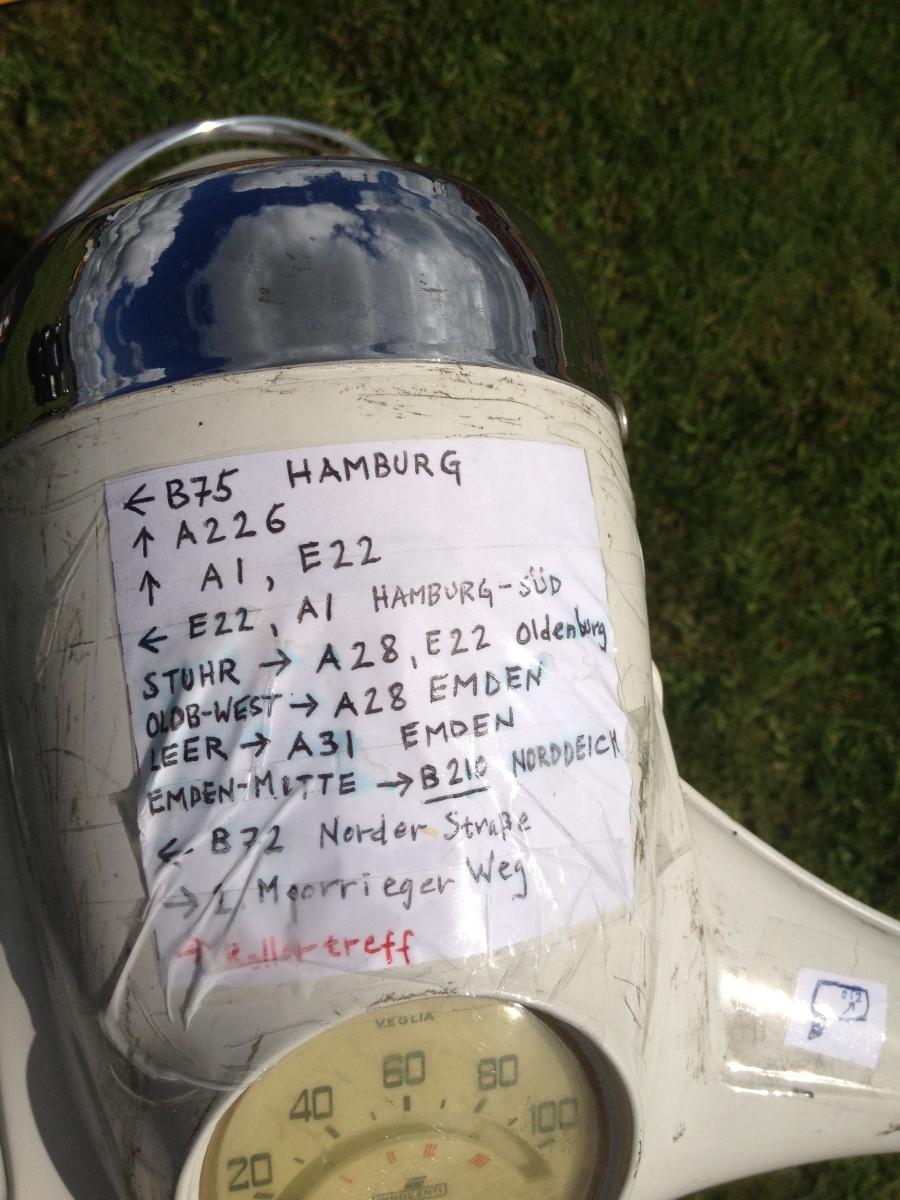 ← B75 HAMBURG
↑ A226
↑ A1, E22
← E22, A1 HAMBURG-SÜD
STUHR → A28, E22 Oldenburg
OLDB-WEST → A28 EMDEN
LEER → A31 EMDEN
EMDEN-MITTE → B210 NORDDEICH
← B72 Norder Straße
→ 1. Moorrieger Weg
→ Rollertreff
VEGLIA
20 40 60 80 100
INNOCENTI